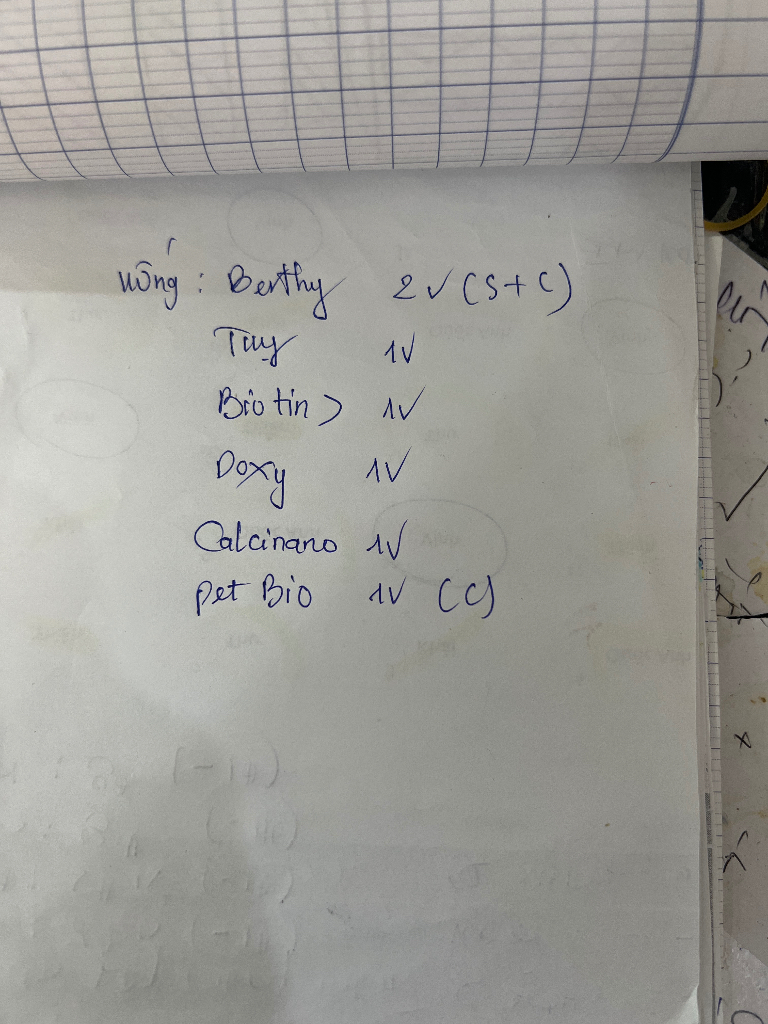 uống : Berthy 2v (S+C)
Tụy 1v
Biotin > 1v
Doxy 1v
Calcinano 1v
pet Bio 1v (C)